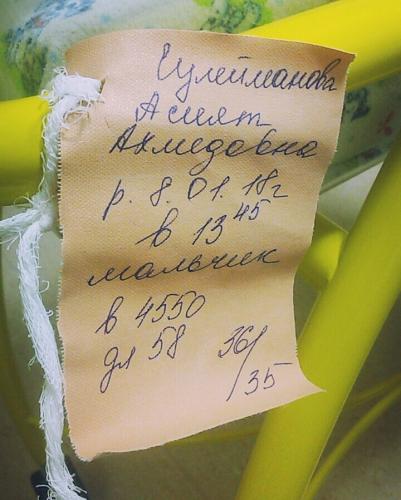 Сулейманова
Асият
Ахмедовна
р. 8.01.18г
в 13 45
мальчик
в 4550
дл 58 36/35